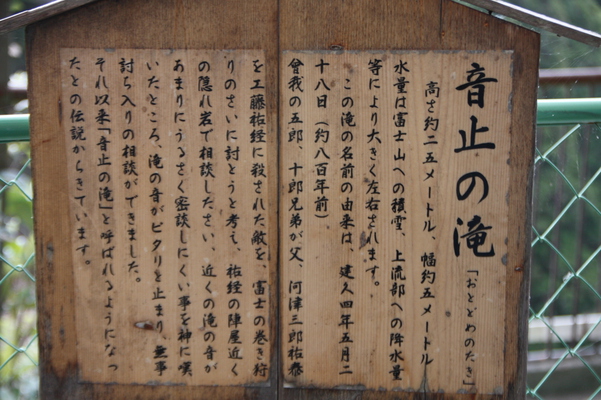 音止の滝「おとどめのたき」
高さ約二五メートル 幅約五メートル
水量は富士山への積雪、上流部への降水量
等により大きく左右されます。
この滝の名前の由来は、建久四年五月二
十八日(約八百年前)
曾我の五郎、十郎兄弟が父、河津三郎祐泰
を工藤祐経に殺された敵を、富士の巻き狩
りのさいに討とうと考え、祐経の陣屋近く
の隠れ岩で相談したさい、近くの滝の音が
あまりにうるさく密談しにくい事を神に嘆
いたところ、滝の音がピタリと止まり、無事
討ち入りの相談ができました。
それ以来「音止の滝」と呼ばれるようになっ
たとの伝説からきています。